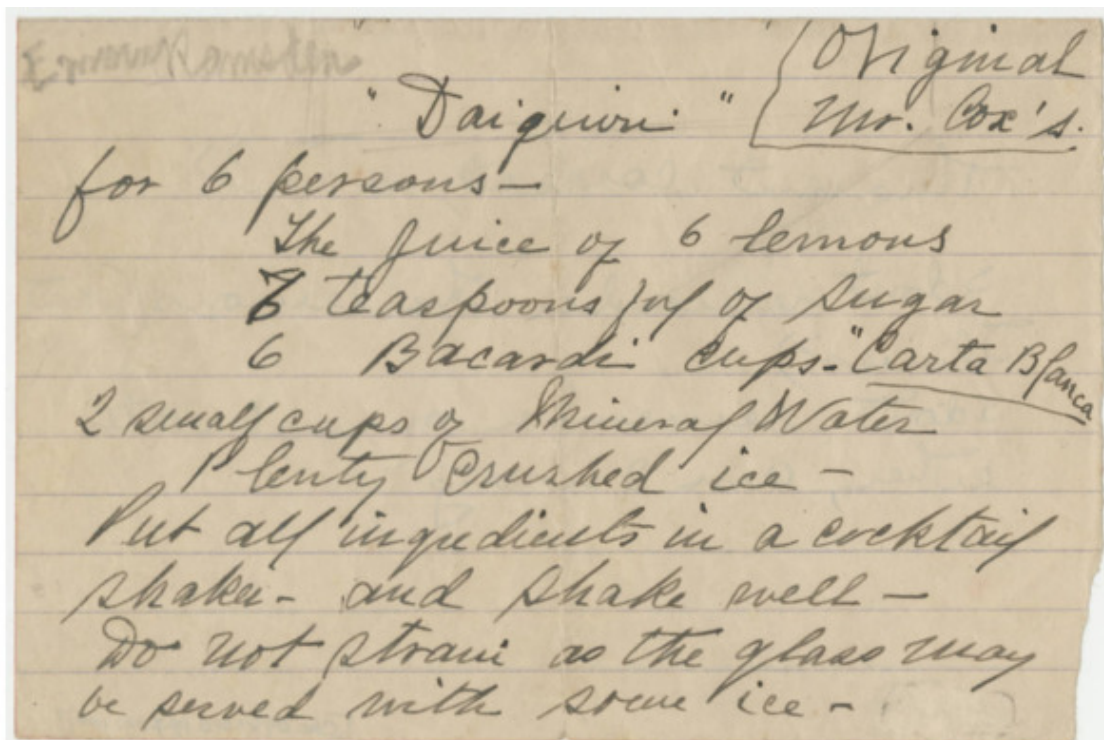 Original
Mr. Cox's.
"Daiquiri"
for 6 persons—
The juice of 6 lemons
teaspoons ful of sugar
6 Bacardi cups-"Carta Blanca
2 small cups of Mineral Water
Plenty crushed ice —
Put all ingredients in a cocktail
shaker - and shake well —
Do not strain as the glass may
be served with some ice —